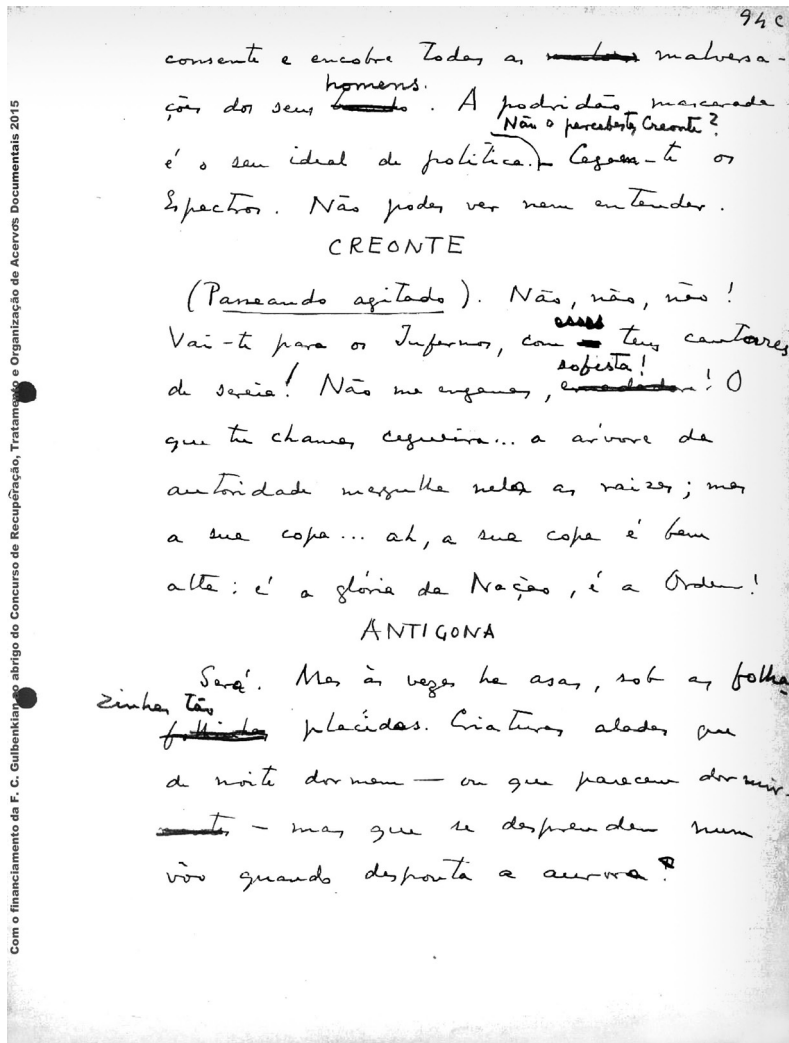 94 C
consente e encobre todas as malversa-
homens.
ções dos seus . A podridão mascarada
Não o percebestes, Creonte?
é o seu ideal de política. Cegam-te os
Espectros. Não podes ver nem entender.
CREONTE
(Passeando agitado). Não, não, não!
esses
Vai-te para os Infernos, com teus cantares
sofista!
de sereia! Não me enganas, ! O
que tu chamas cegueira... a árvore da
autoridade mergulha nela as raizes; mas
a sua copa... ah, a sua copa é bem
alta: é a glória da Nação, é a Ordem!
ANTIGONA
Será. Mas às vezes há asas, sob as folha
zinhas tão
placidas. Criaturas aladas que
de noite dormem — ou que parecem dormir
— mas que se desprendem num
vôo quando desponta a aurora?
Com o financiamento da F. C. Gulbenkian ao abrigo do Concurso de Recuperação, Tratamento e Organização de Acervos Documentais 2015